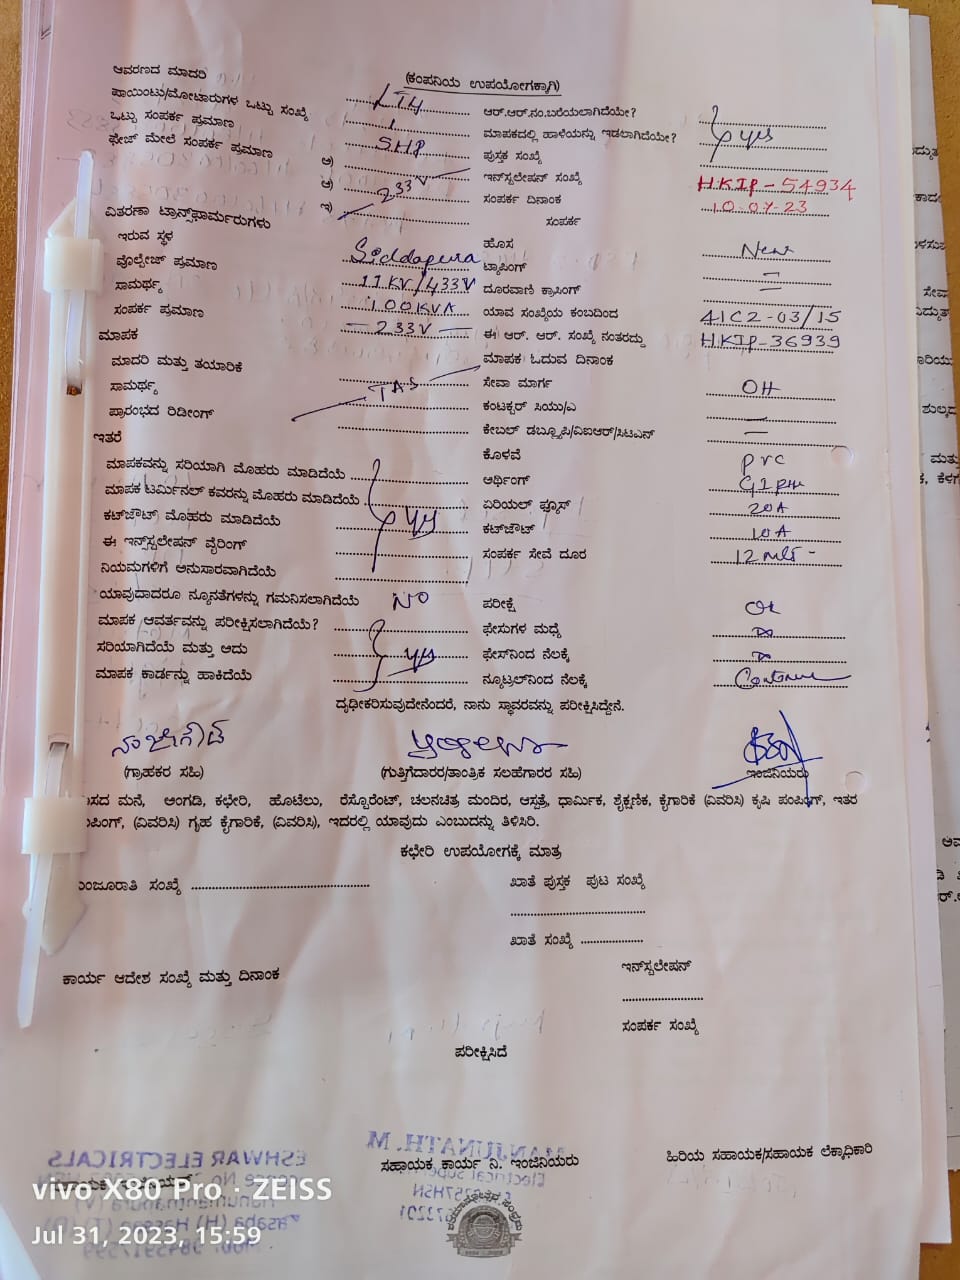 (ಕಂಪನಿಯ ಉಪಯೋಗಕ್ಕಾಗಿ)
ಆವರಣದ ಮಾದರಿ LT4 ಆರ್.ಆರ್.ನಂ.ಬರೆಯಲಾಗಿದೆಯೇ?
ಪಾಯಿಂಟು/ಮೋಟಾರುಗಳ ಒಟ್ಟು ಸಂಖ್ಯೆ 1 ಮಾಪಕದಲ್ಲಿ ಹಾಳೆಯನ್ನು ಇಡಲಾಗಿದೆಯೇ? yes
ಒಟ್ಟು ಸಂಪರ್ಕ ಪ್ರಮಾಣ 5HP ಪುಸ್ತಕ ಸಂಖ್ಯೆ
ಫೇಜ್ ಮೇಲೆ ಸಂಪರ್ಕ ಪ್ರಮಾಣ ಅ) ಇನ್‌ಸ್ಟಲೇಷನ್ ಸಂಖ್ಯೆ HKIP-54934
ಆ) 233V ಸಂಪರ್ಕ ದಿನಾಂಕ 10-07-23
ಇ) ಸಂಪರ್ಕ
ವಿತರಣಾ ಟ್ರಾನ್ಸ್‌ಫಾರ್ಮರುಗಳು
ಇರುವ ಸ್ಥಳ Siddapura ಹೊಸ New
ವೊಲ್ಟೇಜ್ ಪ್ರಮಾಣ 11KV/433V ಟ್ಯಾಪಿಂಗ್ –
ಸಾಮರ್ಥ್ಯ 100KVA ದೂರವಾಣಿ ಕ್ರಾಸಿಂಗ್ –
ಸಂಪರ್ಕ ಪ್ರಮಾಣ – 233V – ಯಾವ ಸಂಖ್ಯೆಯ ಕಂಬದಿಂದ 41C2-03/15
ಮಾಪಕ ಈ ಆರ್. ಆರ್. ಸಂಖ್ಯೆ ನಂತರದ್ದು HKIP-36939
ಮಾದರಿ ಮತ್ತು ತಯಾರಿಕೆ ಮಾಪಕ ಓದುವ ದಿನಾಂಕ
ಸಾಮರ್ಥ್ಯ ಸೇವಾ ಮಾರ್ಗ OH
ಪ್ರಾರಂಭದ ರಿಡೀಂಗ್ ಕಂಟಕ್ಟರ್ ಸಿಯು/ಎ –
ಇತರೆ ಕೇಬಲ್ ಡಬ್ಲ್ಯೂಪಿ/ವಿಐಆರ್/ಸಿಟಿಎನ್ –
ಕೊಳವೆ PVC
ಮಾಪಕವನ್ನು ಸರಿಯಾಗಿ ಮೊಹರು ಮಾಡಿದೆಯೆ ಆರ್ಥಿಂಗ್ GI
ಮಾಪಕ ಟರ್ಮಿನಲ್ ಕವರನ್ನು ಮೊಹರು ಮಾಡಿದೆಯೆ ಏರಿಯಲ್ ಫ್ಯೂಸ್ 20A
ಕಟ್‌ಔಟ್ ಮೊಹರು ಮಾಡಿದೆಯೆ yes ಕಟ್‌ಔಟ್ 10A
ಈ ಇನ್‌ಸ್ಟಲೇಷನ್ ವೈರಿಂಗ್ ಸಂಪರ್ಕ ಸೇವೆ ದೂರ 12
ನಿಯಮಗಳಿಗೆ ಅನುಸಾರವಾಗಿದೆಯೆ
ಯಾವುದಾದರೂ ನ್ಯೂನತೆಗಳನ್ನು ಗಮನಿಸಲಾಗಿದೆಯೆ NO ಪರೀಕ್ಷೆ Ok
ಮಾಪಕ ಆವರ್ತವನ್ನು ಪರೀಕ್ಷಿಸಲಾಗಿದೆಯೆ? ಫೇಸುಗಳ ಮಧ್ಯೆ ∞
ಸರಿಯಾಗಿದೆಯೆ ಮತ್ತು ಅದು yes ಫೇಸ್‌ನಿಂದ ನೆಲಕ್ಕೆ ∞
ಮಾಪಕ ಕಾರ್ಡನ್ನು ಹಾಕಿದೆಯೆ ನ್ಯೂಟ್ರಲ್‌ನಿಂದ ನೆಲಕ್ಕೆ
ದೃಢೀಕರಿಸುವುದೇನೆಂದರೆ, ನಾನು ಸ್ಥಾವರವನ್ನು ಪರೀಕ್ಷಿಸಿದ್ದೇನೆ.
(ಗ್ರಾಹಕರ ಸಹಿ) (ಗುತ್ತಿಗೆದಾರರ/ತಾಂತ್ರಿಕ ಸಲಹೆಗಾರರ ಸಹಿ) ಇಂಜಿನಿಯರು
ಸದ ಮನೆ, ಅಂಗಡಿ, ಕಛೇರಿ, ಹೊಟೆಲು, ರೆಸ್ಟೊರೆಂಟ್, ಚಲನಚಿತ್ರ ಮಂದಿರ, ಆಸ್ಪತ್ರೆ, ಧಾರ್ಮಿಕ, ಶೈಕ್ಷಣಿಕ, ಕೈಗಾರಿಕೆ (ವಿವರಿಸಿ) ಕೃಷಿ ಪಂಪಿಂಗ್, ಇತರ
ಪಿಂಗ್, (ವಿವರಿಸಿ) ಗೃಹ ಕೈಗಾರಿಕೆ, (ವಿವರಿಸಿ), ಇದರಲ್ಲಿ ಯಾವುದು ಎಂಬುದನ್ನು ತಿಳಿಸಿರಿ.
ಕಛೇರಿ ಉಪಯೋಗಕ್ಕೆ ಮಾತ್ರ
ಂಜೂರಾತಿ ಸಂಖ್ಯೆ ಖಾತೆ ಪುಸ್ತಕ ಪುಟ ಸಂಖ್ಯೆ
ಖಾತೆ ಸಂಖ್ಯೆ
ಕಾರ್ಯ ಆದೇಶ ಸಂಖ್ಯೆ ಮತ್ತು ದಿನಾಂಕ ಇನ್‌ಸ್ಪಲೇಷನ್
ಸಂಪರ್ಕ ಸಂಖ್ಯೆ
ಪರೀಕ್ಷಿಸಿದೆ
ಸಹಾಯಕ ಕಾರ್ಯ ನಿ. ಇಂಜಿನಿಯರು ಹಿರಿಯ ಸಹಾಯಕ/ಸಹಾಯಕ ಲೆಕ್ಕಾಧಿಕಾರಿ
vivo X80 Pro · ZEISS
Jul 31, 2023, 15:59